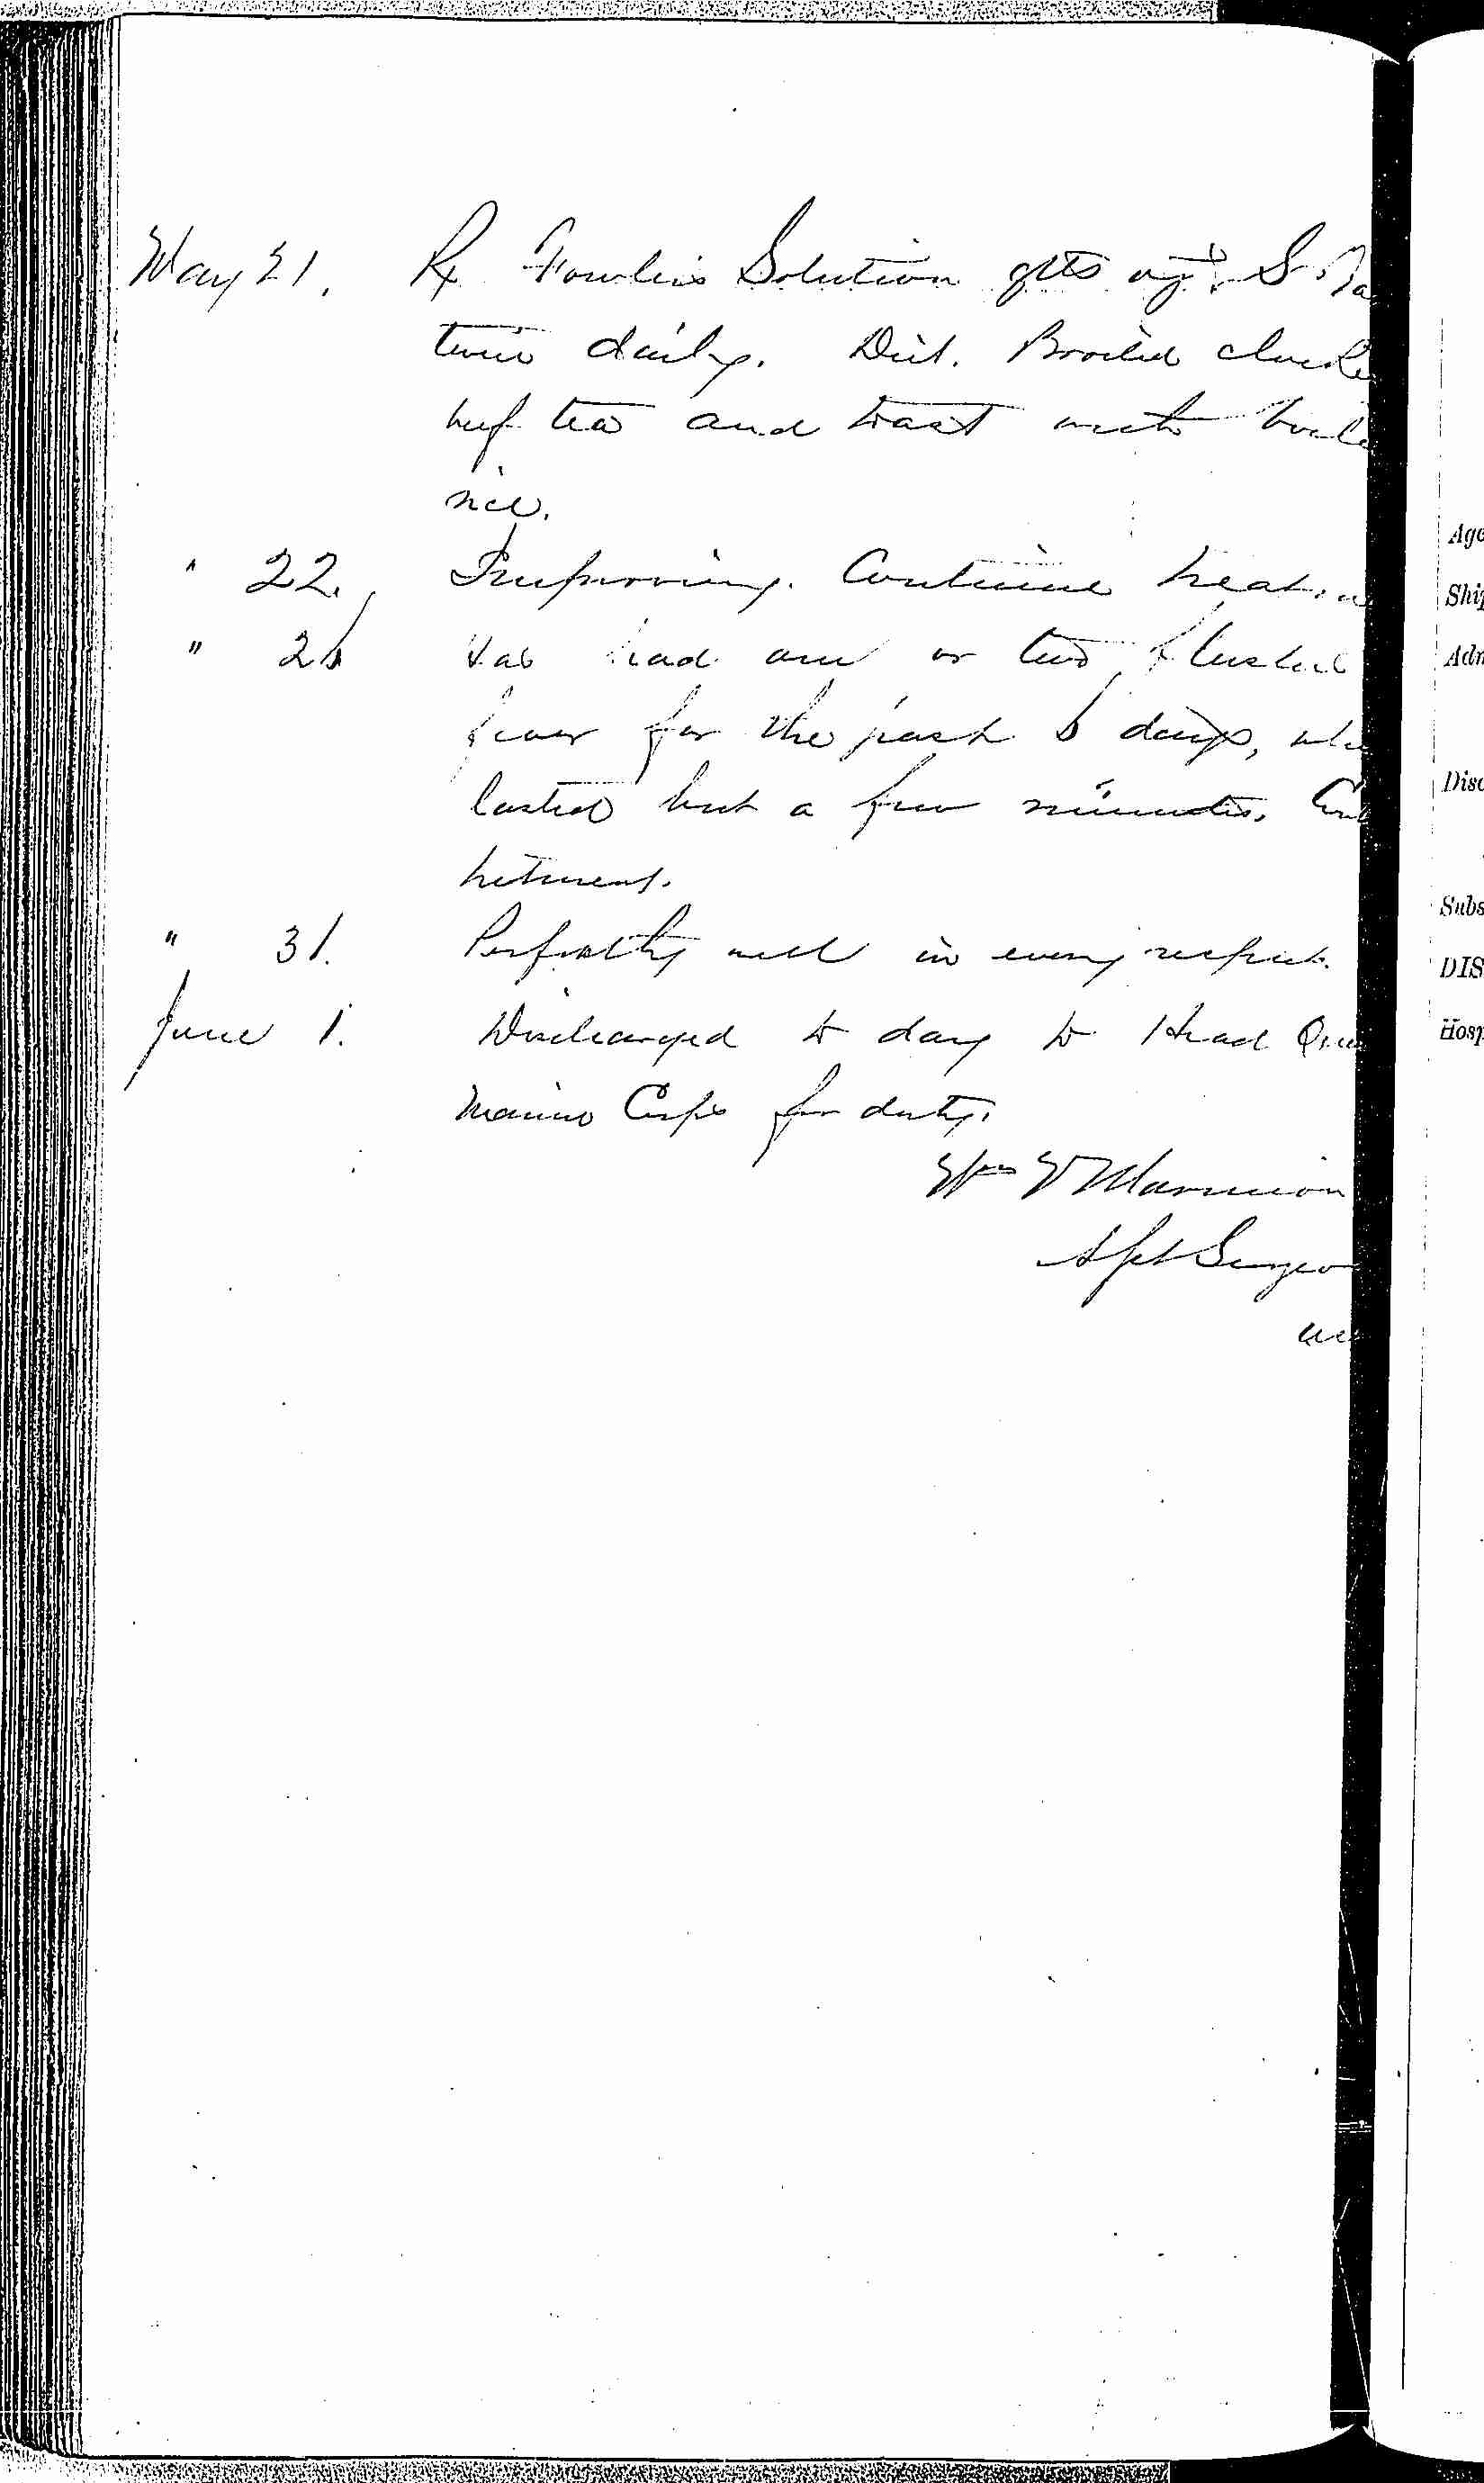 May 21. Rx Fowler's Solution gtts vj. S. Ta
twice daily. Diet. Broiled chicke
beef tea and toast with boile
rice.
" 22. Improving. Continue treat
" 26 Has had one or two flushes
fever for the past 6 days, whi
lasted but a few minutes. Con
tretment.
" 31. Perfectly well in every respect.
June 1. Discharged to day to Head Qua
Marine Corps for duty.
Wm V Marmion
Asst Surgeo
Age
Ship
Adm
Disc
Subs
DIS
Hosp